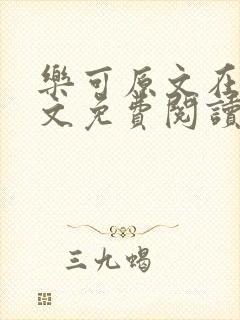 樂可原文在
文免費閱讀
三九蝎